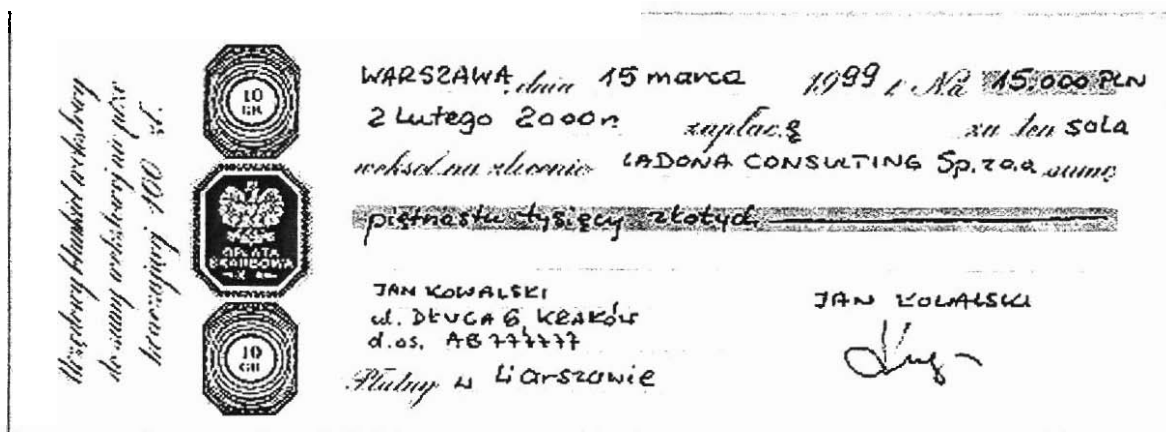 Urzędowy blankiet wekslowy
do sumy wekslowej nie prze
kraczającej 100 zł.
10
GR
OPŁATA
SKARBOWA
10
GR
WARSZAWA, dnia 15 marca 1999 r. Na 15.000 PLN
2 Lutego 2000r. zapłacę za ten sola
weksel na zlecenie LADONA CONSULTING Sp. z o.o sumę
piętnastu tysięcy złotych
JAN KOWALSKI
ul. DŁUGA 6, KRAKÓW
d.os. AB 777777
Płatny w Warszawie
JAN KOWALSKI